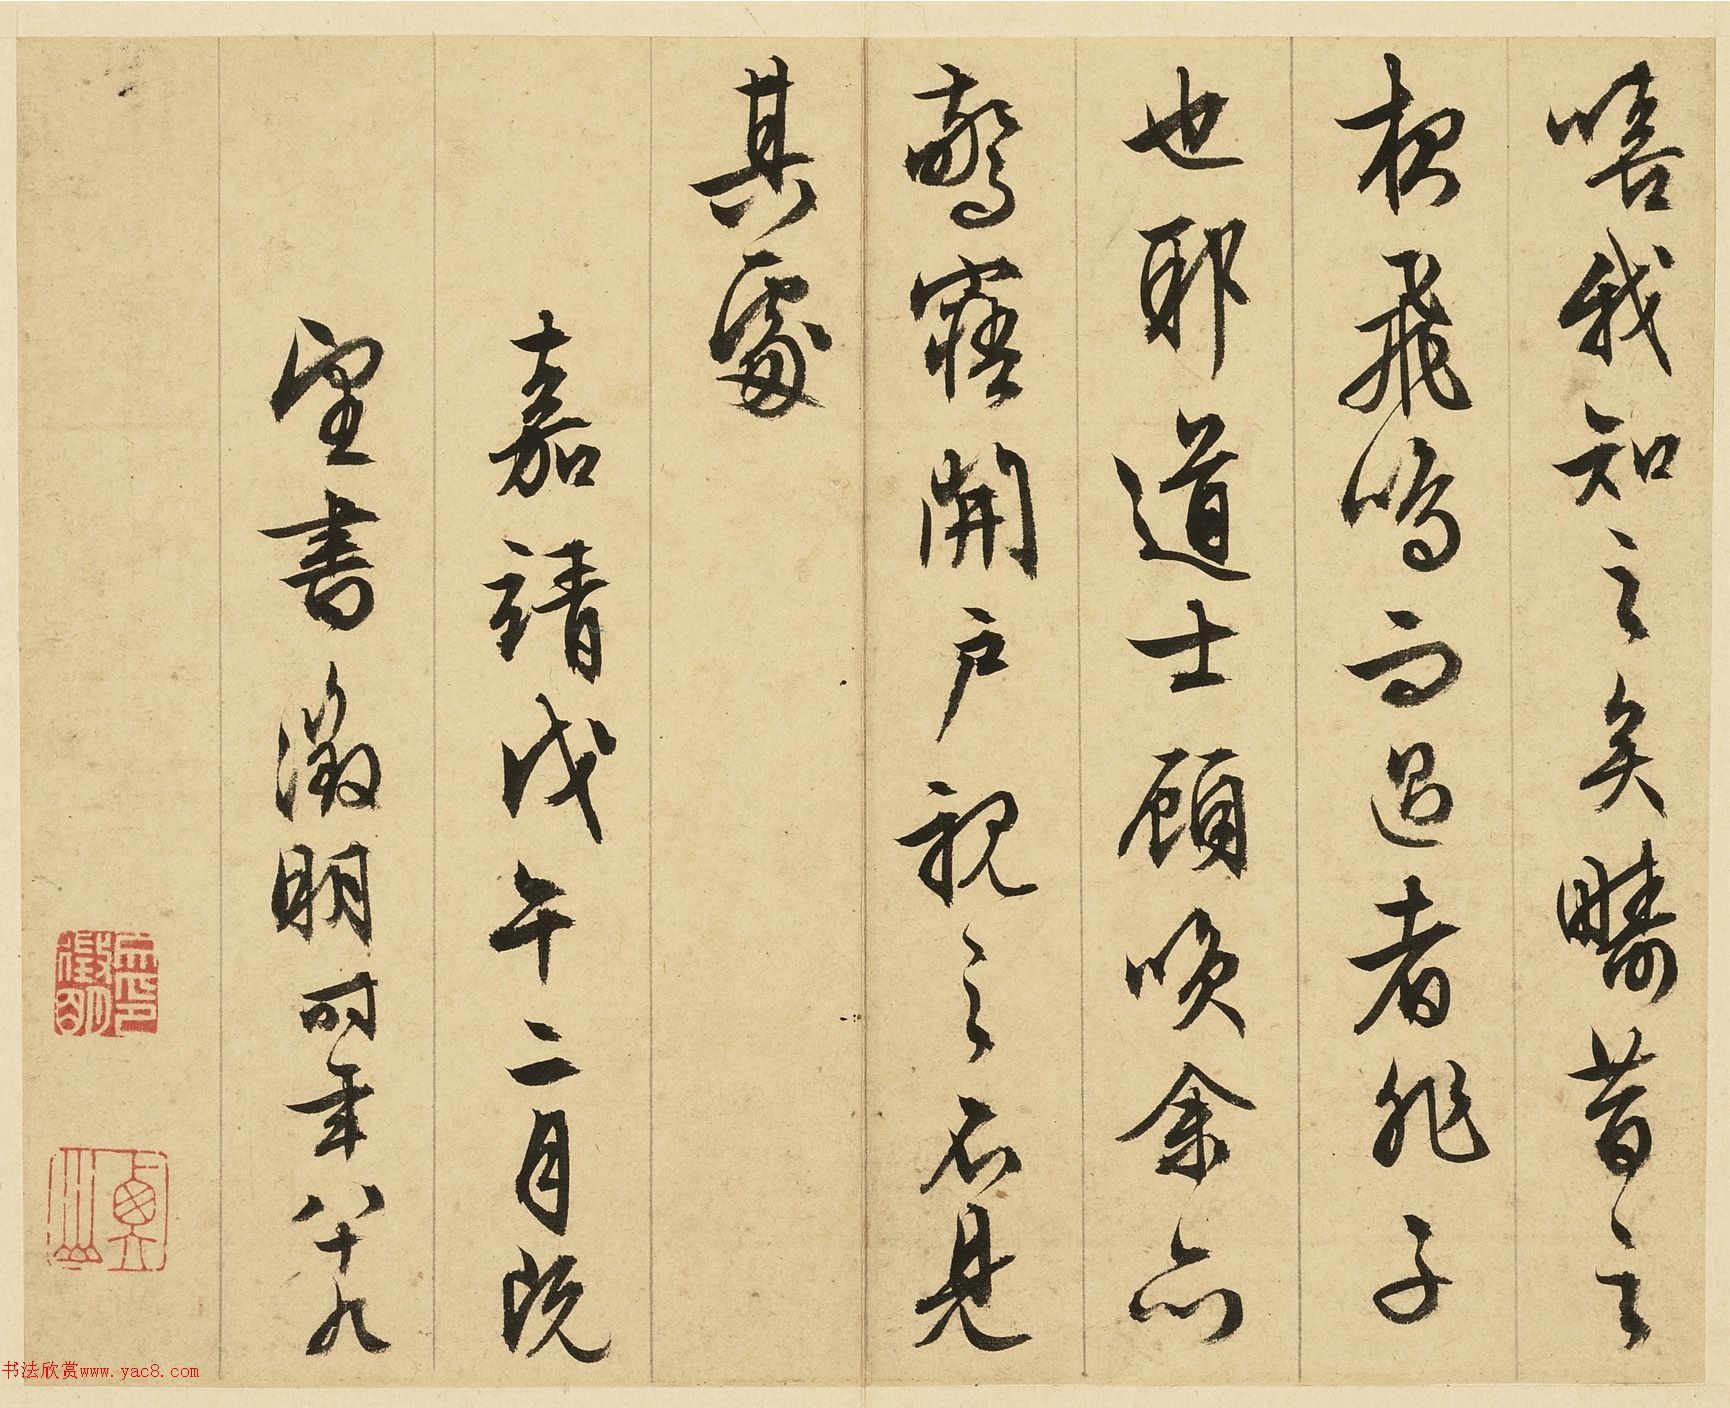 嘻我知之矣疇昔之
夜飛鳴而過者非子
也耶道士顧唉余亦
驚寤開戶視之不見
其處
嘉靖戊午二月既
望書徵明時年八十九
徵明
書法欣赏www.yac8.com